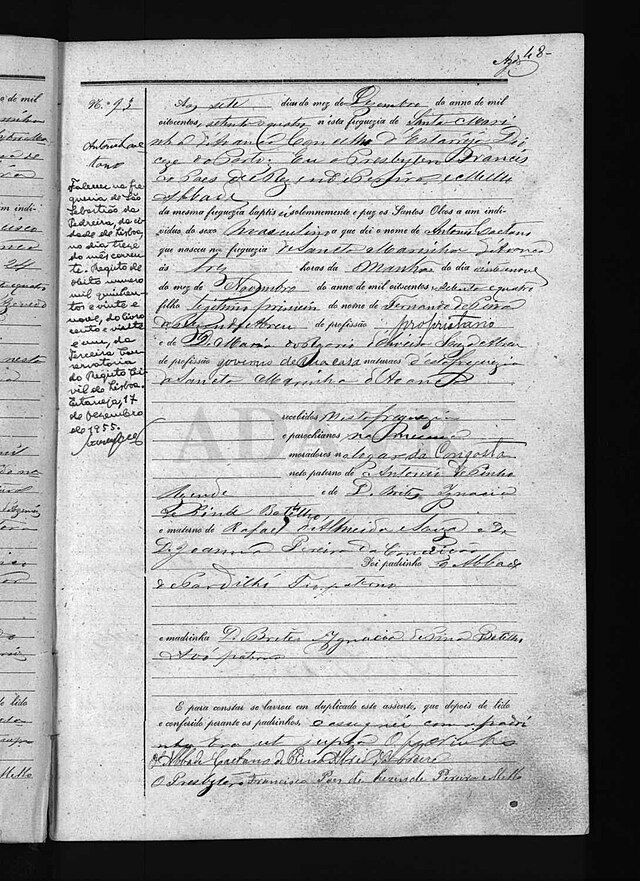 48-
N.º 93
Antonio Cae
tano
Faleceu na fre
guesia de São
Sebastião da
Pedreira, da ci
dade de Lisboa,
no dia treze
do mês corren
te. Registo de
óbito numero
mil quinhen
tos e vinte e
nove, do livro
cento e vinte
e um, da
Terceira Con
servatoria
do Registo Ci
vil de Lisboa.
Estarreja, 17
de Dezembro
de 1955.
Aos sete dias do mez de Dezembro do anno de mil
oitocentos, setenta e quatro n'esta freguezia de Santa Mari
nha d'Avanca Concelho d'Estarreja Dio
cese do Porto. Eu o Presbytero Francis
co Paes de Rezende Pereira e Mello
Abbade
da mesma freguezia baptisei solemnemente e puz os Santos Oleos a um indi-
viduo do sexo masculino a que dei o nome de Antonio Caetano
que nasceu na freguezia de Santa Marinha d'Avanca
ás tres horas da manhã do dia vinte nove
do mez de Novembro do anno de mil oitocentos setenta e quatro
filho legitimo primeiro do nome de Fernando de Pinho
de Rezende Abreu de profissão proprietario
e de D. Maria do
de profissão governo de sua casa naturaes d'esta freguezia
de Santa Marinha d'Avanca
recebidos nesta freguezia
e parochianos na mesma
moradores no logar da Congosta
neto paterno de Antonio de Pinho
Rezende e de D. Brites Ignacia
de Pinho Botelho
e materno de Rafael d'Almeida e Souza e D.
Joanna Pereira da Conceição
Foi padrinho o Abbade
de Pardilhó Tio paterno
e madrinha D. Brites Ignacia de Pinho Botelho
Avó paterna
E para constar se lavrou em duplicado este assento, que depois de lido
e conferido perante os padrinhos, o assignei com o padri
nho Era ut supra O padrinho
O Abbade Caetano de Pinho
O Presbytero Francisco Paes de Rezende Pereira e Mello